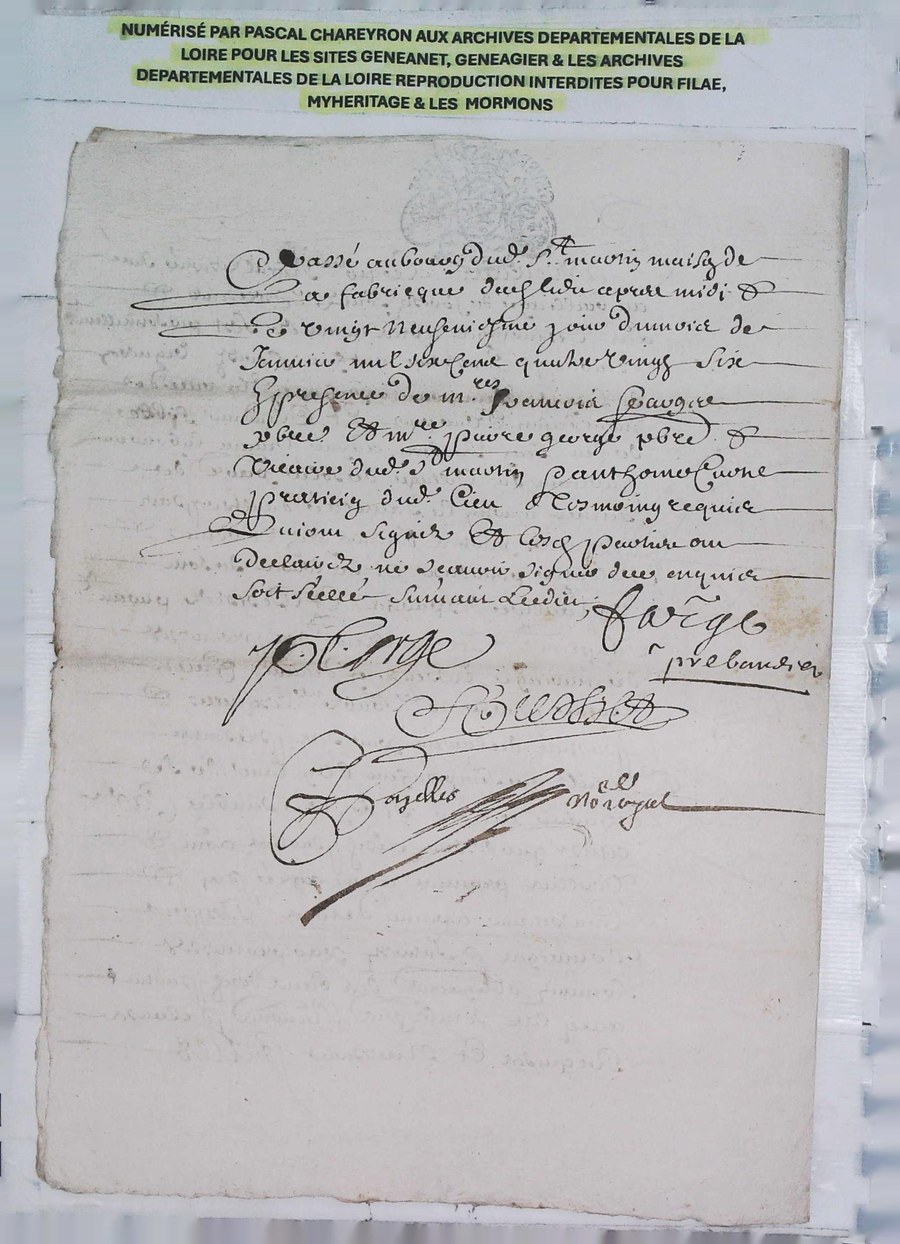 NUMÉRISÉ PAR PASCAL CHAREYRON AUX ARCHIVES DEPARTEMENTALES DE LA
LOIRE POUR LES SITES GENEANET, GENEAGIER & LES ARCHIVES
DEPARTEMENTALES DE LA LOIRE REPRODUCTION INTERDITES POUR FILAE,
MYHERITAGE & LES MORMONS
passé au bourg dud. St martin maison de
la fabricque dud. lieu apres midi
Le vingt neufvieme jour du mois de
Janvier mil six cent quatre vingt six
presence de m.res francois
pbre Et m.re pierre george pbre &
Vicaire dud. St martin
praticien dud. lieu tesmoing requis
qui ont signé Et lesd. parties ont
declairé ne scavoir signer de ce enquis
soit scellé suivant Ledict
farge
george
prebandier
Bayelles No.re royal